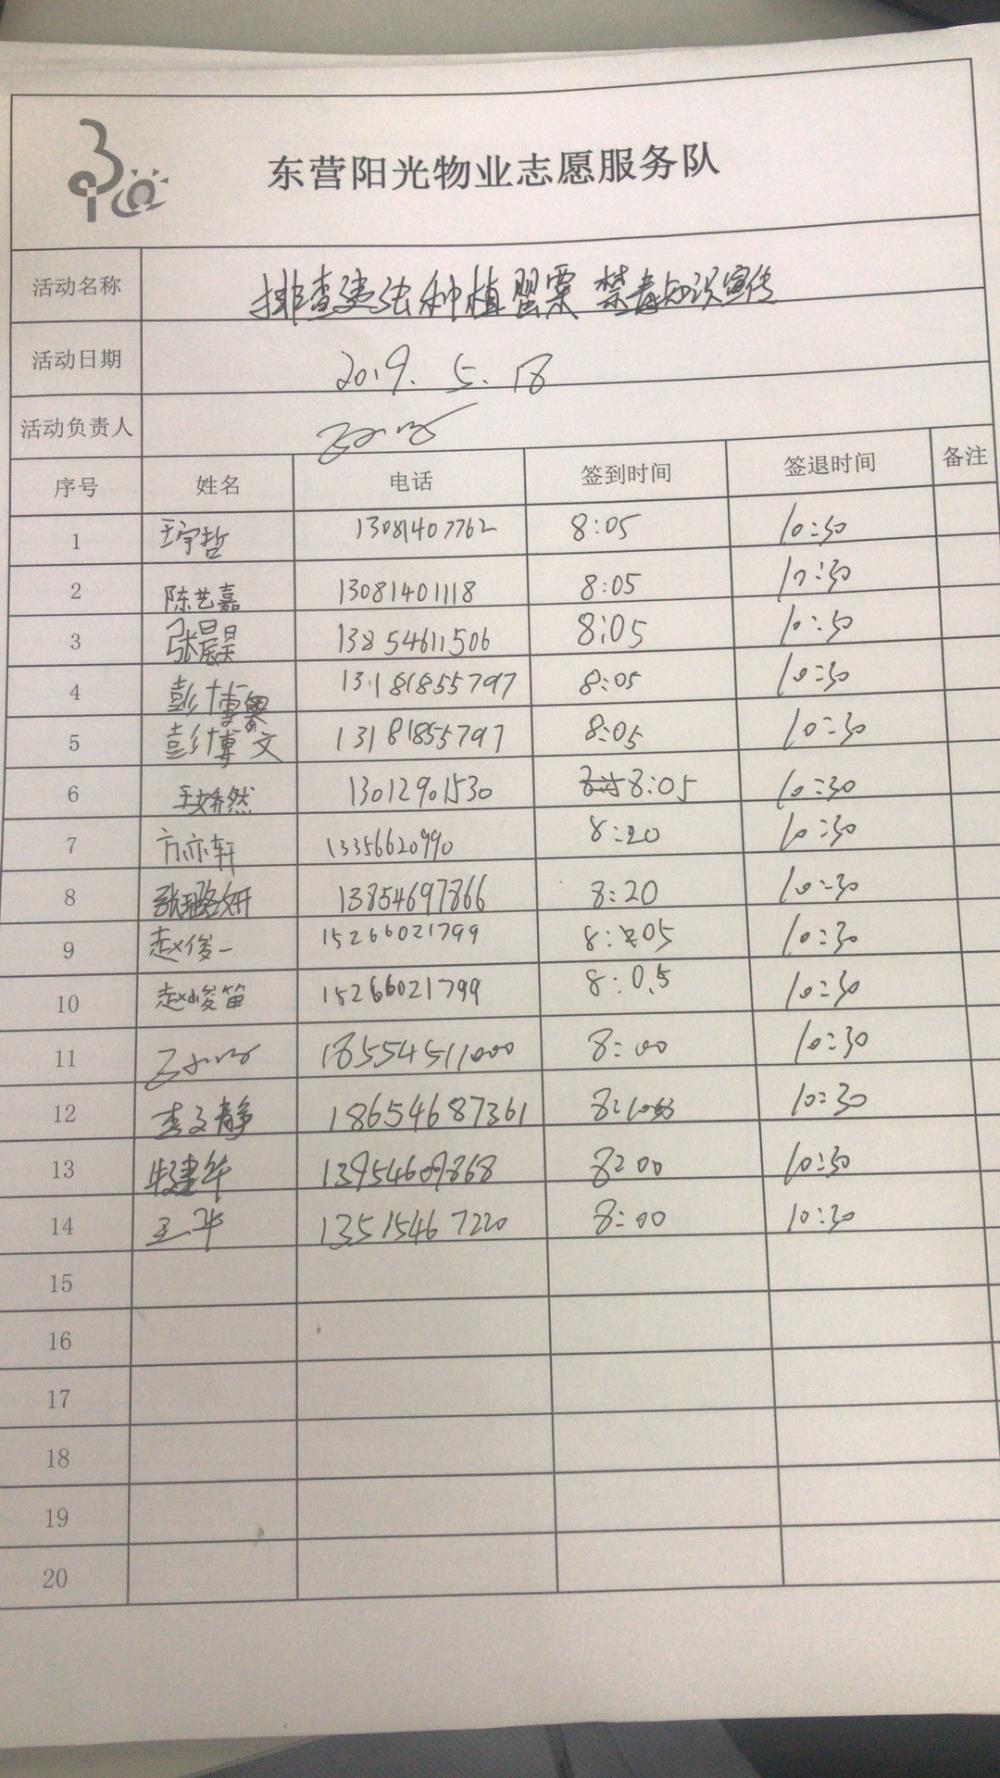 东营阳光物业志愿服务队
活动名称 排查违法种植罂粟 禁毒知识宣传
活动日期 2019.5.18
活动负责人
序号 姓名 电话 签到时间 签退时间 备注
1 王宇哲 13081407762 8:05 10:30
2 陈艺嘉 13081401118 8:05 10:30
3 张晨昊 13854611506 8:05 10:30
4 彭博奥 13181855797 8:05 10:30
5 彭博文 13181855797 8:05 10:30
6 王娇然 13012901530 8:05 10:30
7 方亦轩 13356620990 8:20 10:30
8 张璐妍 13854697866 8:20 10:30
9 赵俊一 15266021799 8:05 10:30
10 赵峻笛 15266021799 8:05 10:30
11 18554511000 8:00 10:30
12 李文静 18654687361 10:30
13 建华 13954609868 8:00 10:30
14 王华 13515467220 8:00 10:30
15
16
17
18
19
20